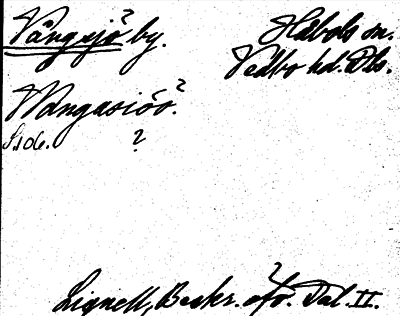 Vångsjö by.
Håbols sn.
Vedbo hd. Dls.
Wangasiöo?
S. 106. ?
Lignell, Beskr. öfv. Dal. II.